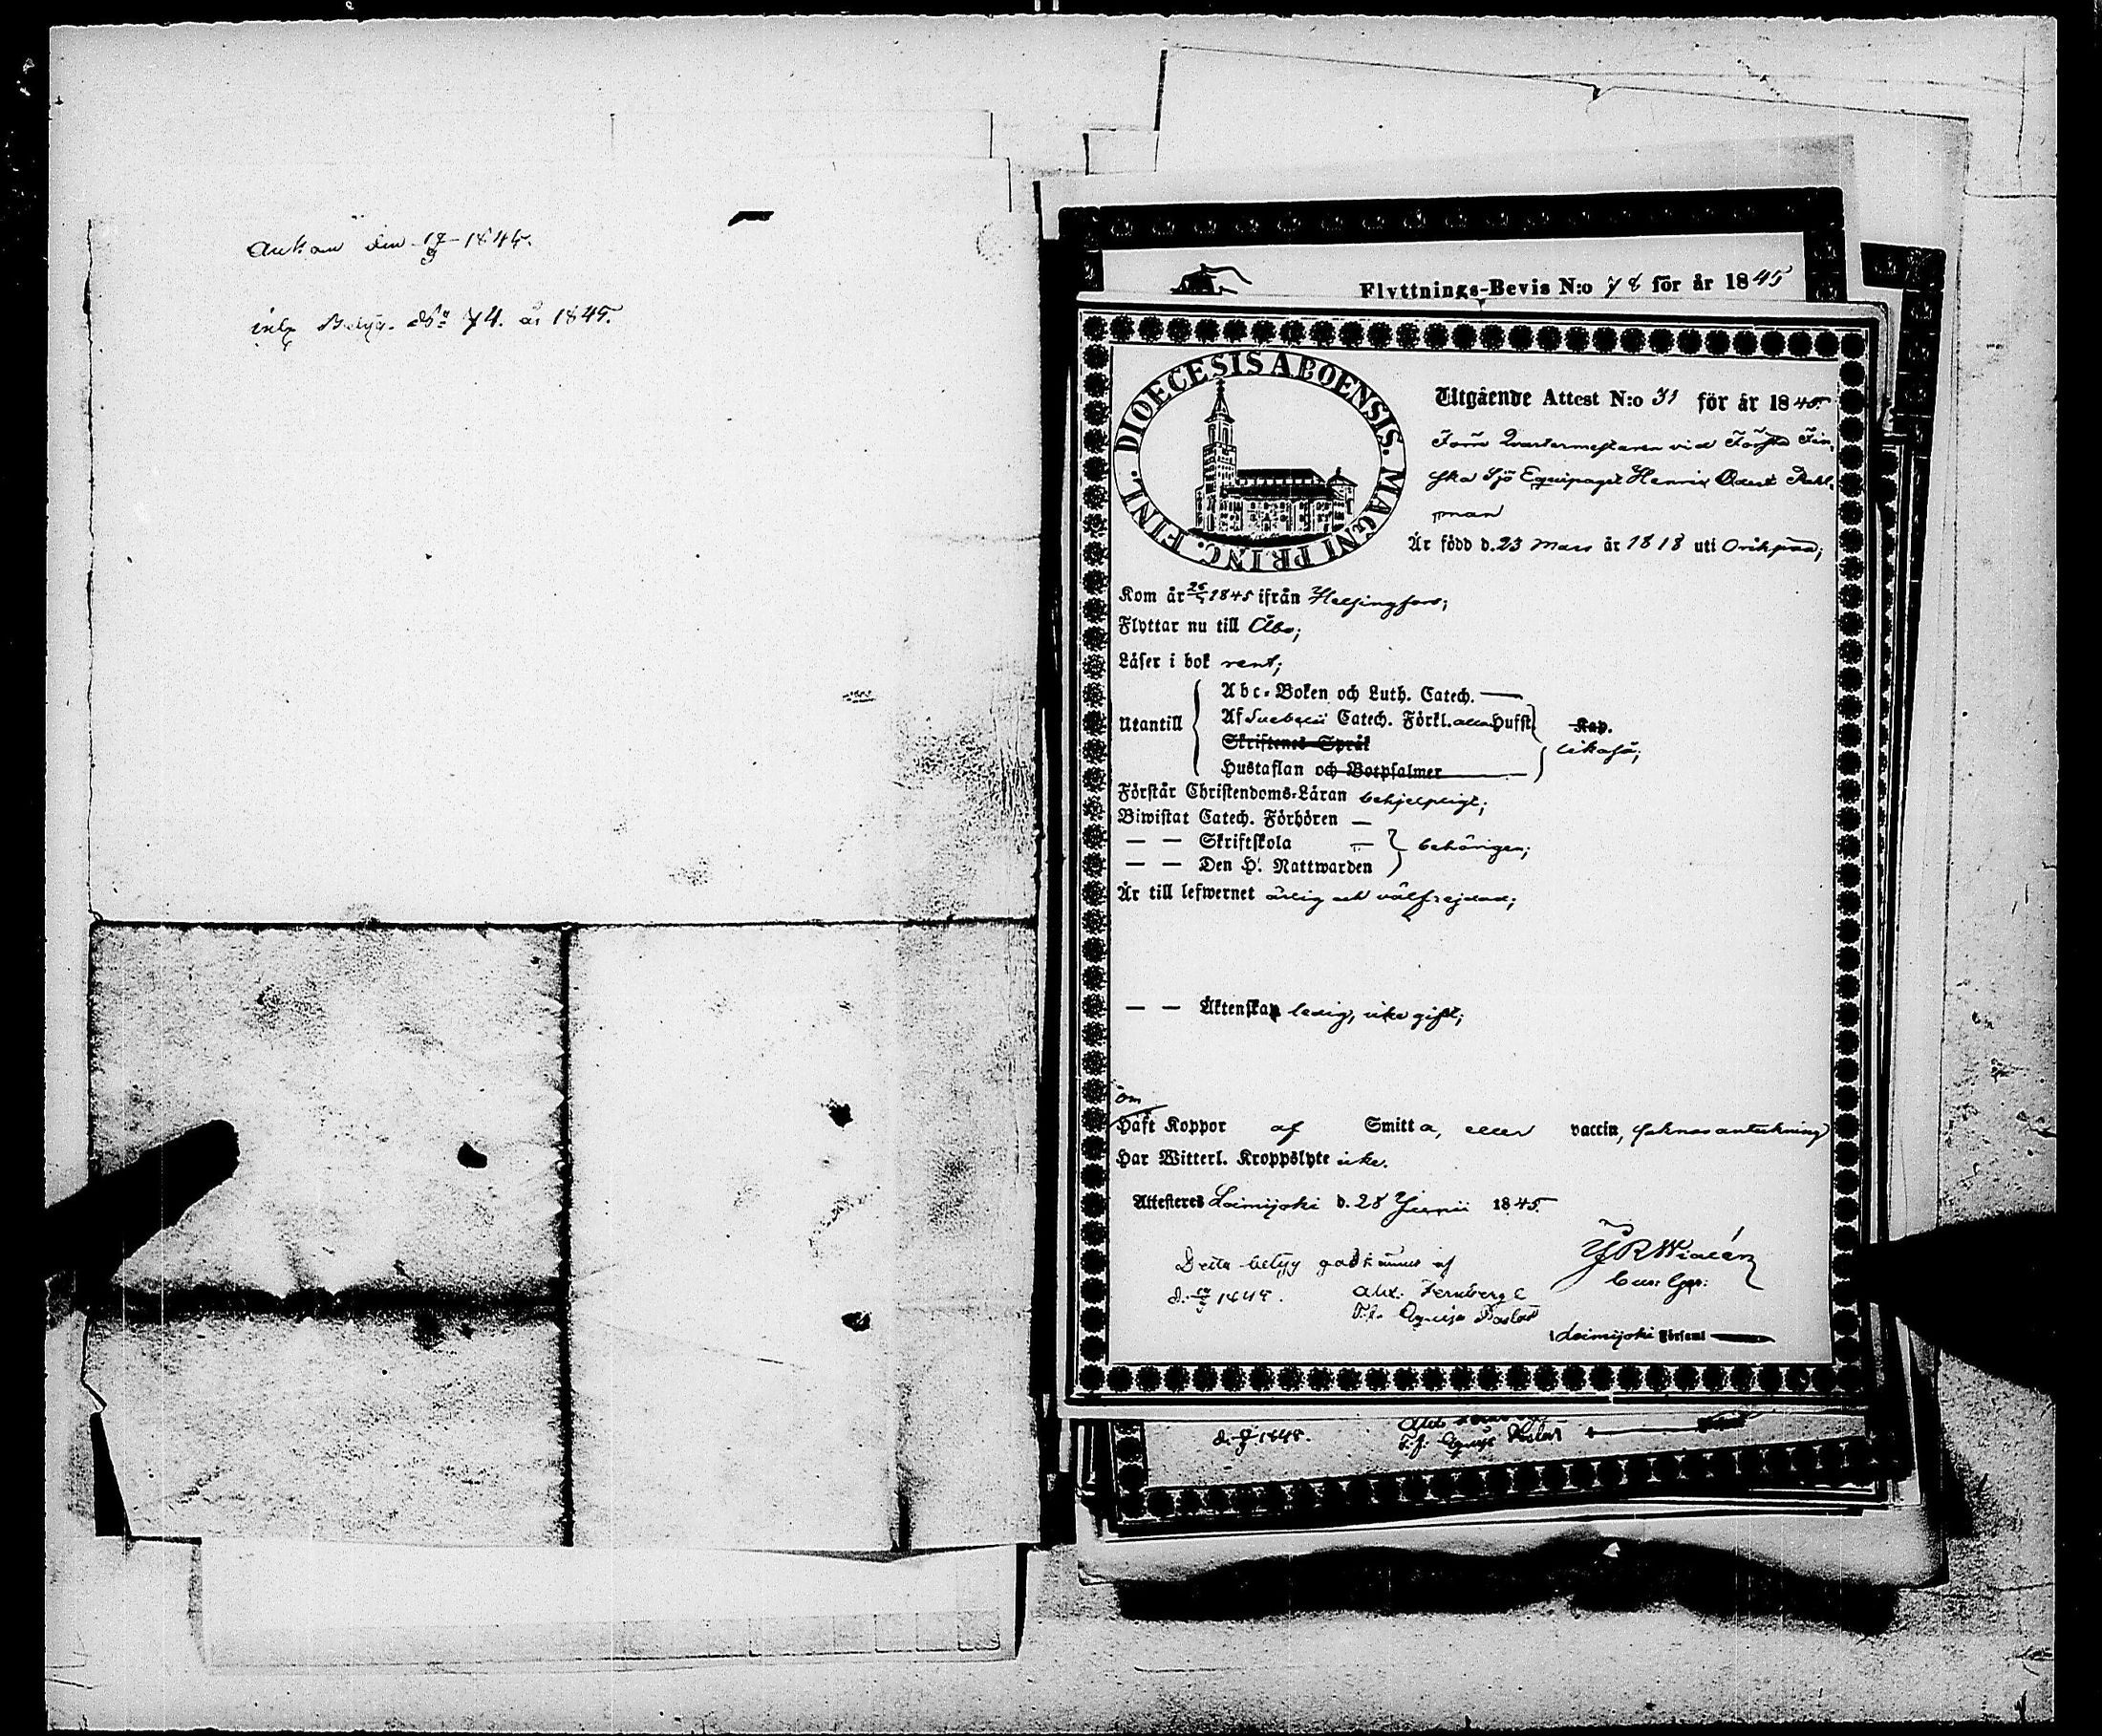 Ankom den 17/9 1845.
ink. Betyg. No 74. år 1845.
Flyttnings-Bevis N:o 78 för år 1845
DIOECESIS ABOENSIS. MAGNI PRINC. FINL.
Utgående Attest N:o 31 för år 1845.
Förre Quartermästaren vid Första Fin-
ska Sjö Equipaget Henrik
man
Är född d. 23 Mars år 1818 uti Orihpää;
Kom år 26/5 1845 ifrån Helsingfors;
Flyttar nu till Åbo;
Läser i bok rent;
Utantill
Abc-Boken och Luth. Catech. —
Af Svebelii Catech. Förkl. alla Hufst.
Kap.
Skriftenes Språk
likaså;
Hustaflan och Botpsalmer
Förstår Christendoms-Läran behjelpligt;
Biwistat Catech. Förhören —
— — Skriftskola — behörigen;
— — Den H. Nattwarden
Är till lefwernet ärlig och välfrejdad;
— — Äktenskap ledig, icke gift;
om
Haft Koppor af Smitta, eller vaccin, saknas anteckning
Har Witterl. Kroppslyte icke.
Attesteras Loimijoki d. 28 Junii 1845.
Detta betyg godkännes af
J R Widén
d. 1845. Alex. Fernberg
T.f. Pastor
i Loimijoki Församl
d. 1845.
T.f. Pastor